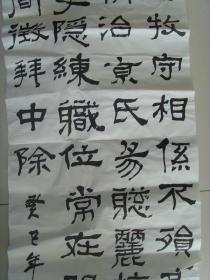 牧守相係不殞
治京氏易聰麗
隱練職位常在
徵拜中除
癸巳年